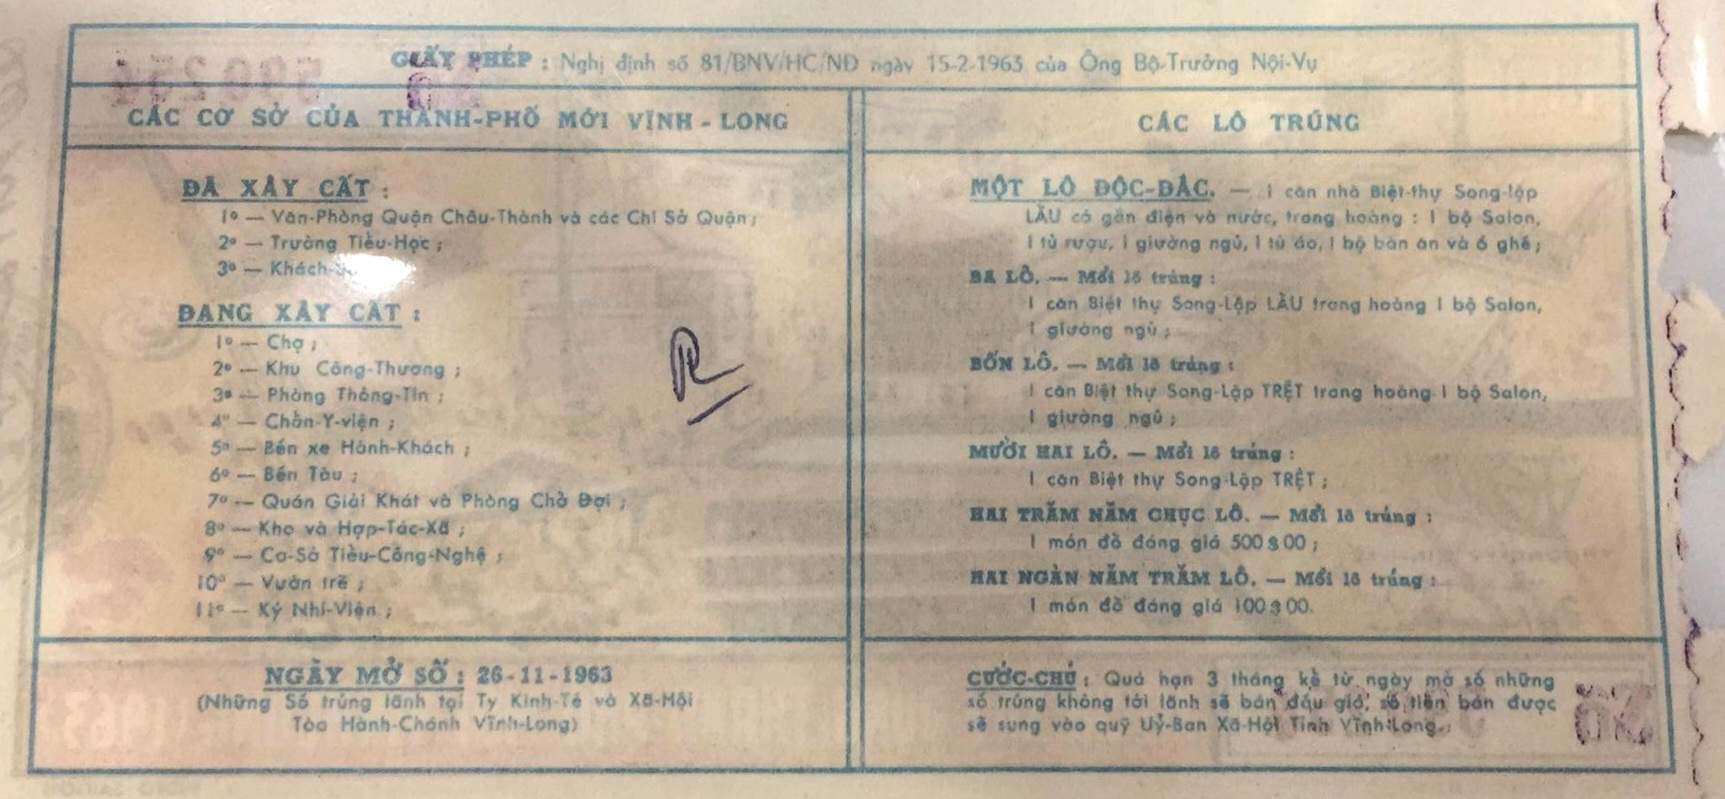 GIẤY PHÉP : Nghị định số 81/BNV/HC/NĐ ngày 15-2-1963 của Ông Bộ-Trưởng Nội-Vụ
CÁC CƠ SỞ CỦA THÀNH-PHỐ MỚI VĨNH - LONG
ĐÃ XÂY CẤT :
1º — Văn-Phòng Quận Châu-Thành và các Chi Sở Quận ;
2º — Trường Tiểu-Học ;
3º — Khách-
ĐANG XÂY CẤT :
1º — Chợ ;
2º — Khu Công-Thương ;
3º — Phòng Thông-Tin ;
4º — Chẩn-Y-viện ;
5º — Bến xe Hành-Khách ;
6º — Bến Tàu ;
7º — Quán Giải Khát và Phòng Chờ Đợi ;
8º — Kho và Hợp-Tác-Xã ;
9º — Cơ-Sở Tiểu-Công-Nghệ ;
10º — Vườn trẻ ;
11º — Ký Nhi-Viện ;
NGÀY MỞ SỐ : 26-11-1963
(Những Số trúng lãnh tại Ty Kinh-Tế và Xã-Hội
Tòa Hành-Chánh Vĩnh-Long)
CÁC LÔ TRÚNG
MỘT LÔ ĐỘC-ĐẮC. — 1 căn nhà Biệt-thự Song-lập
LẦU có gắn điện và nước, trang hoàng : 1 bộ Salon,
1 tủ rượu, 1 giường ngủ, 1 tủ áo, 1 bộ bàn ăn và 6 ghế ;
BA LÔ. — Mổi lô trúng :
1 căn Biệt thự Song-Lập LẦU trang hoàng 1 bộ Salon,
1 giường ngủ ;
BỐN LÔ. — Mổi lô trúng :
1 căn Biệt thự Song-Lập TRỆT trang hoàng 1 bộ Salon,
1 giường ngủ ;
MƯỜI HAI LÔ. — Mổi lô trúng :
1 căn Biệt thự Song-Lập TRỆT ;
HAI TRĂM NĂM CHỤC LÔ. — Mổi lô trúng :
1 món đồ đáng giá 500$00 ;
HAI NGÀN NĂM TRĂM LÔ. — Mổi lô trúng :
1 món đồ đáng giá 100$00.
CƯỚC-CHÚ : Quá hạn 3 tháng kể từ ngày mở số những
số trúng không tới lãnh sẽ bán đấu giá, số tiền bán được
sẽ sung vào quỹ Uỷ-Ban Xã-Hội Tỉnh Vĩnh-Long.